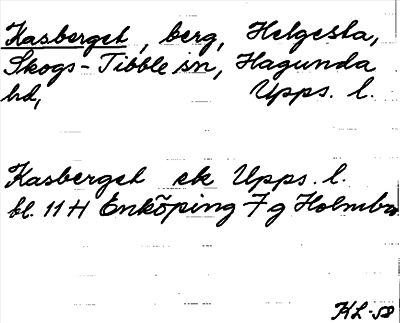 Kasberget, berg, Helgesta,
Skogs-Tibble sn, Hagunda
hd, Upps. l.
Kasberget ek Upps. l.
bl. 11 H Enköping 7 g Holmbro.
KL-58